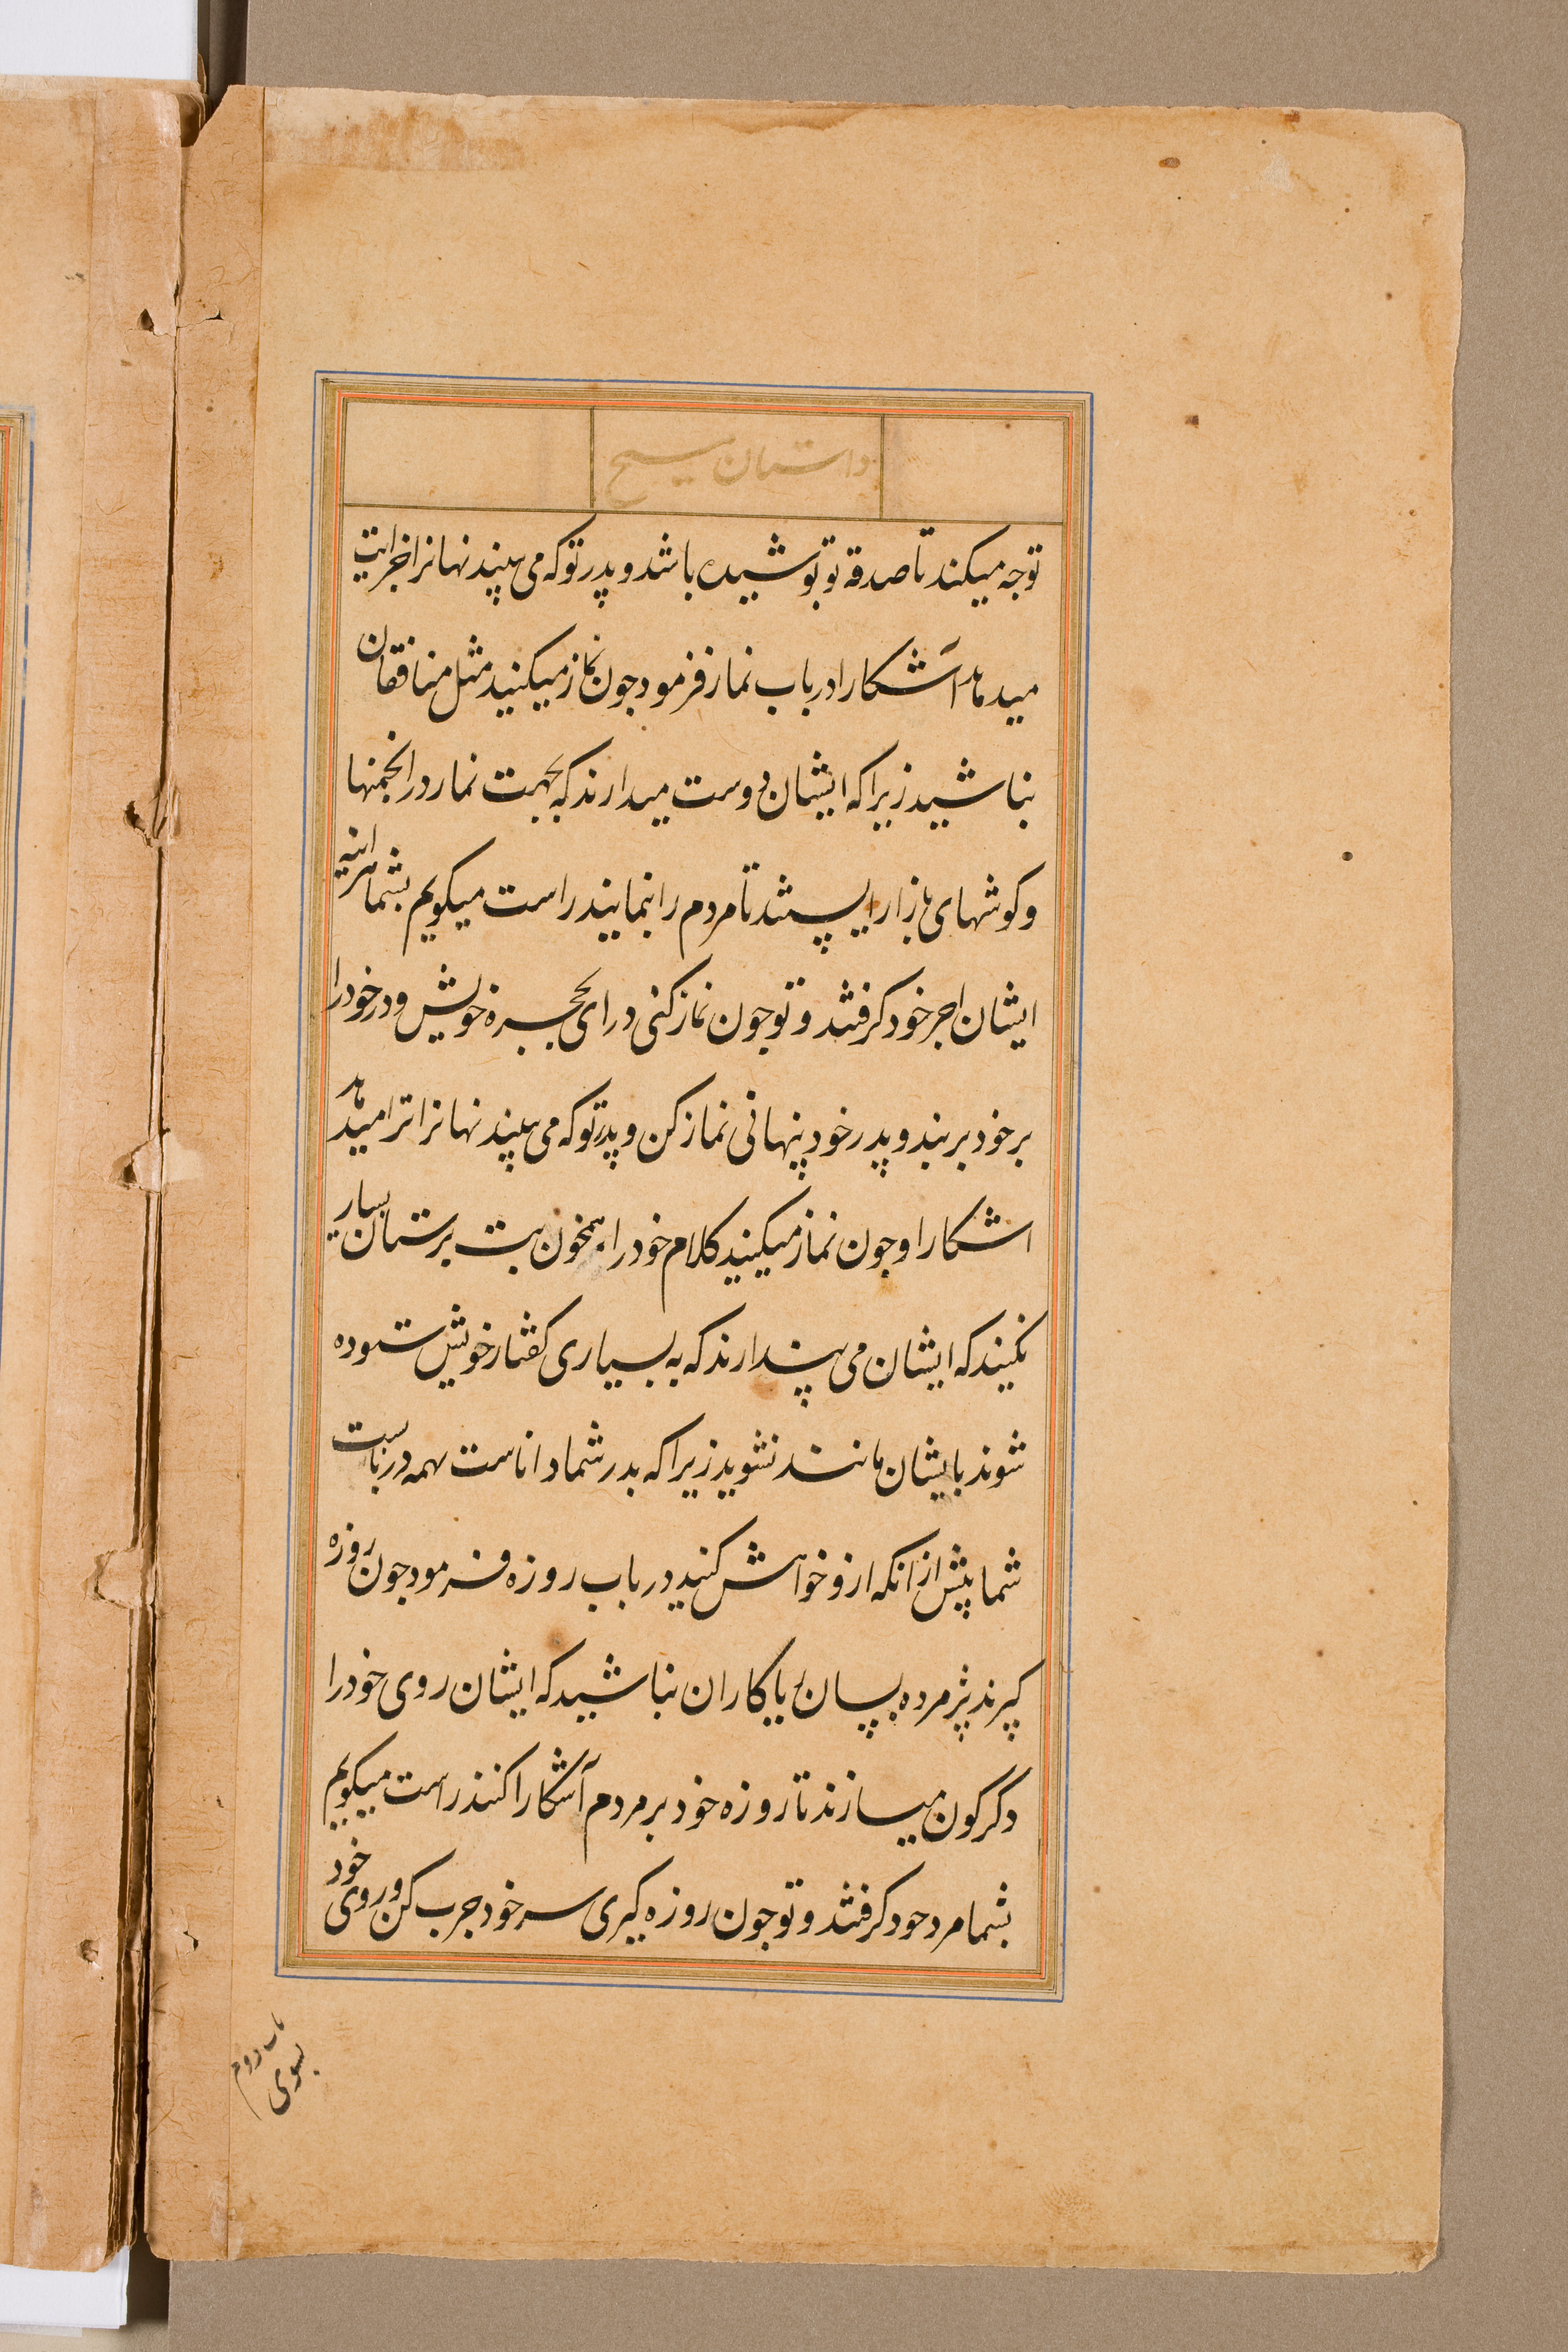 داستان مسیح
توجه میکند تا صدقه تو پوشیده باشد و پدر تو که می بیند نهانرا اجرایت
میدهد اشکارا در باب نماز فرمود چون نماز میکنید مثل منافقان
نباشید زیرا که ایشان دوست میدارند که بجهت نماز در انجمنها
و کوشهای بازار ایستند تا مردم را نمایند راست میکویم بشما هراینه
ایشان اجر خود کرفتند و تو چون نماز کنی درای بحجره خویش و در خود را
بر خود بربند و پدر خود پنهانی نماز کن و پدر تو که می بیند نهانرا ترا میدهد
اشکارا و چون نماز میکنید کلام خود را همچون بت پرستان بسیار
نکنید که ایشان می پندارند که به بسیاری کفتار خویش ستوده
شوند بایشان مانند نشوید زیرا که پدر شما داناست بهمه دربایست
شما پیش از انکه ازو خواهش کنید در باب روزه فرمود چون روزه
کیرند پژمرده بسان ریاکاران نباشید که ایشان روی خود را
دکرکون میسازند تا روزه خود بر مردم آشکارا کنند راست میکویم
بشما مزد خود کرفتند و تو چون روزه کیری سر خود چرب کن و روی خود
بشوی